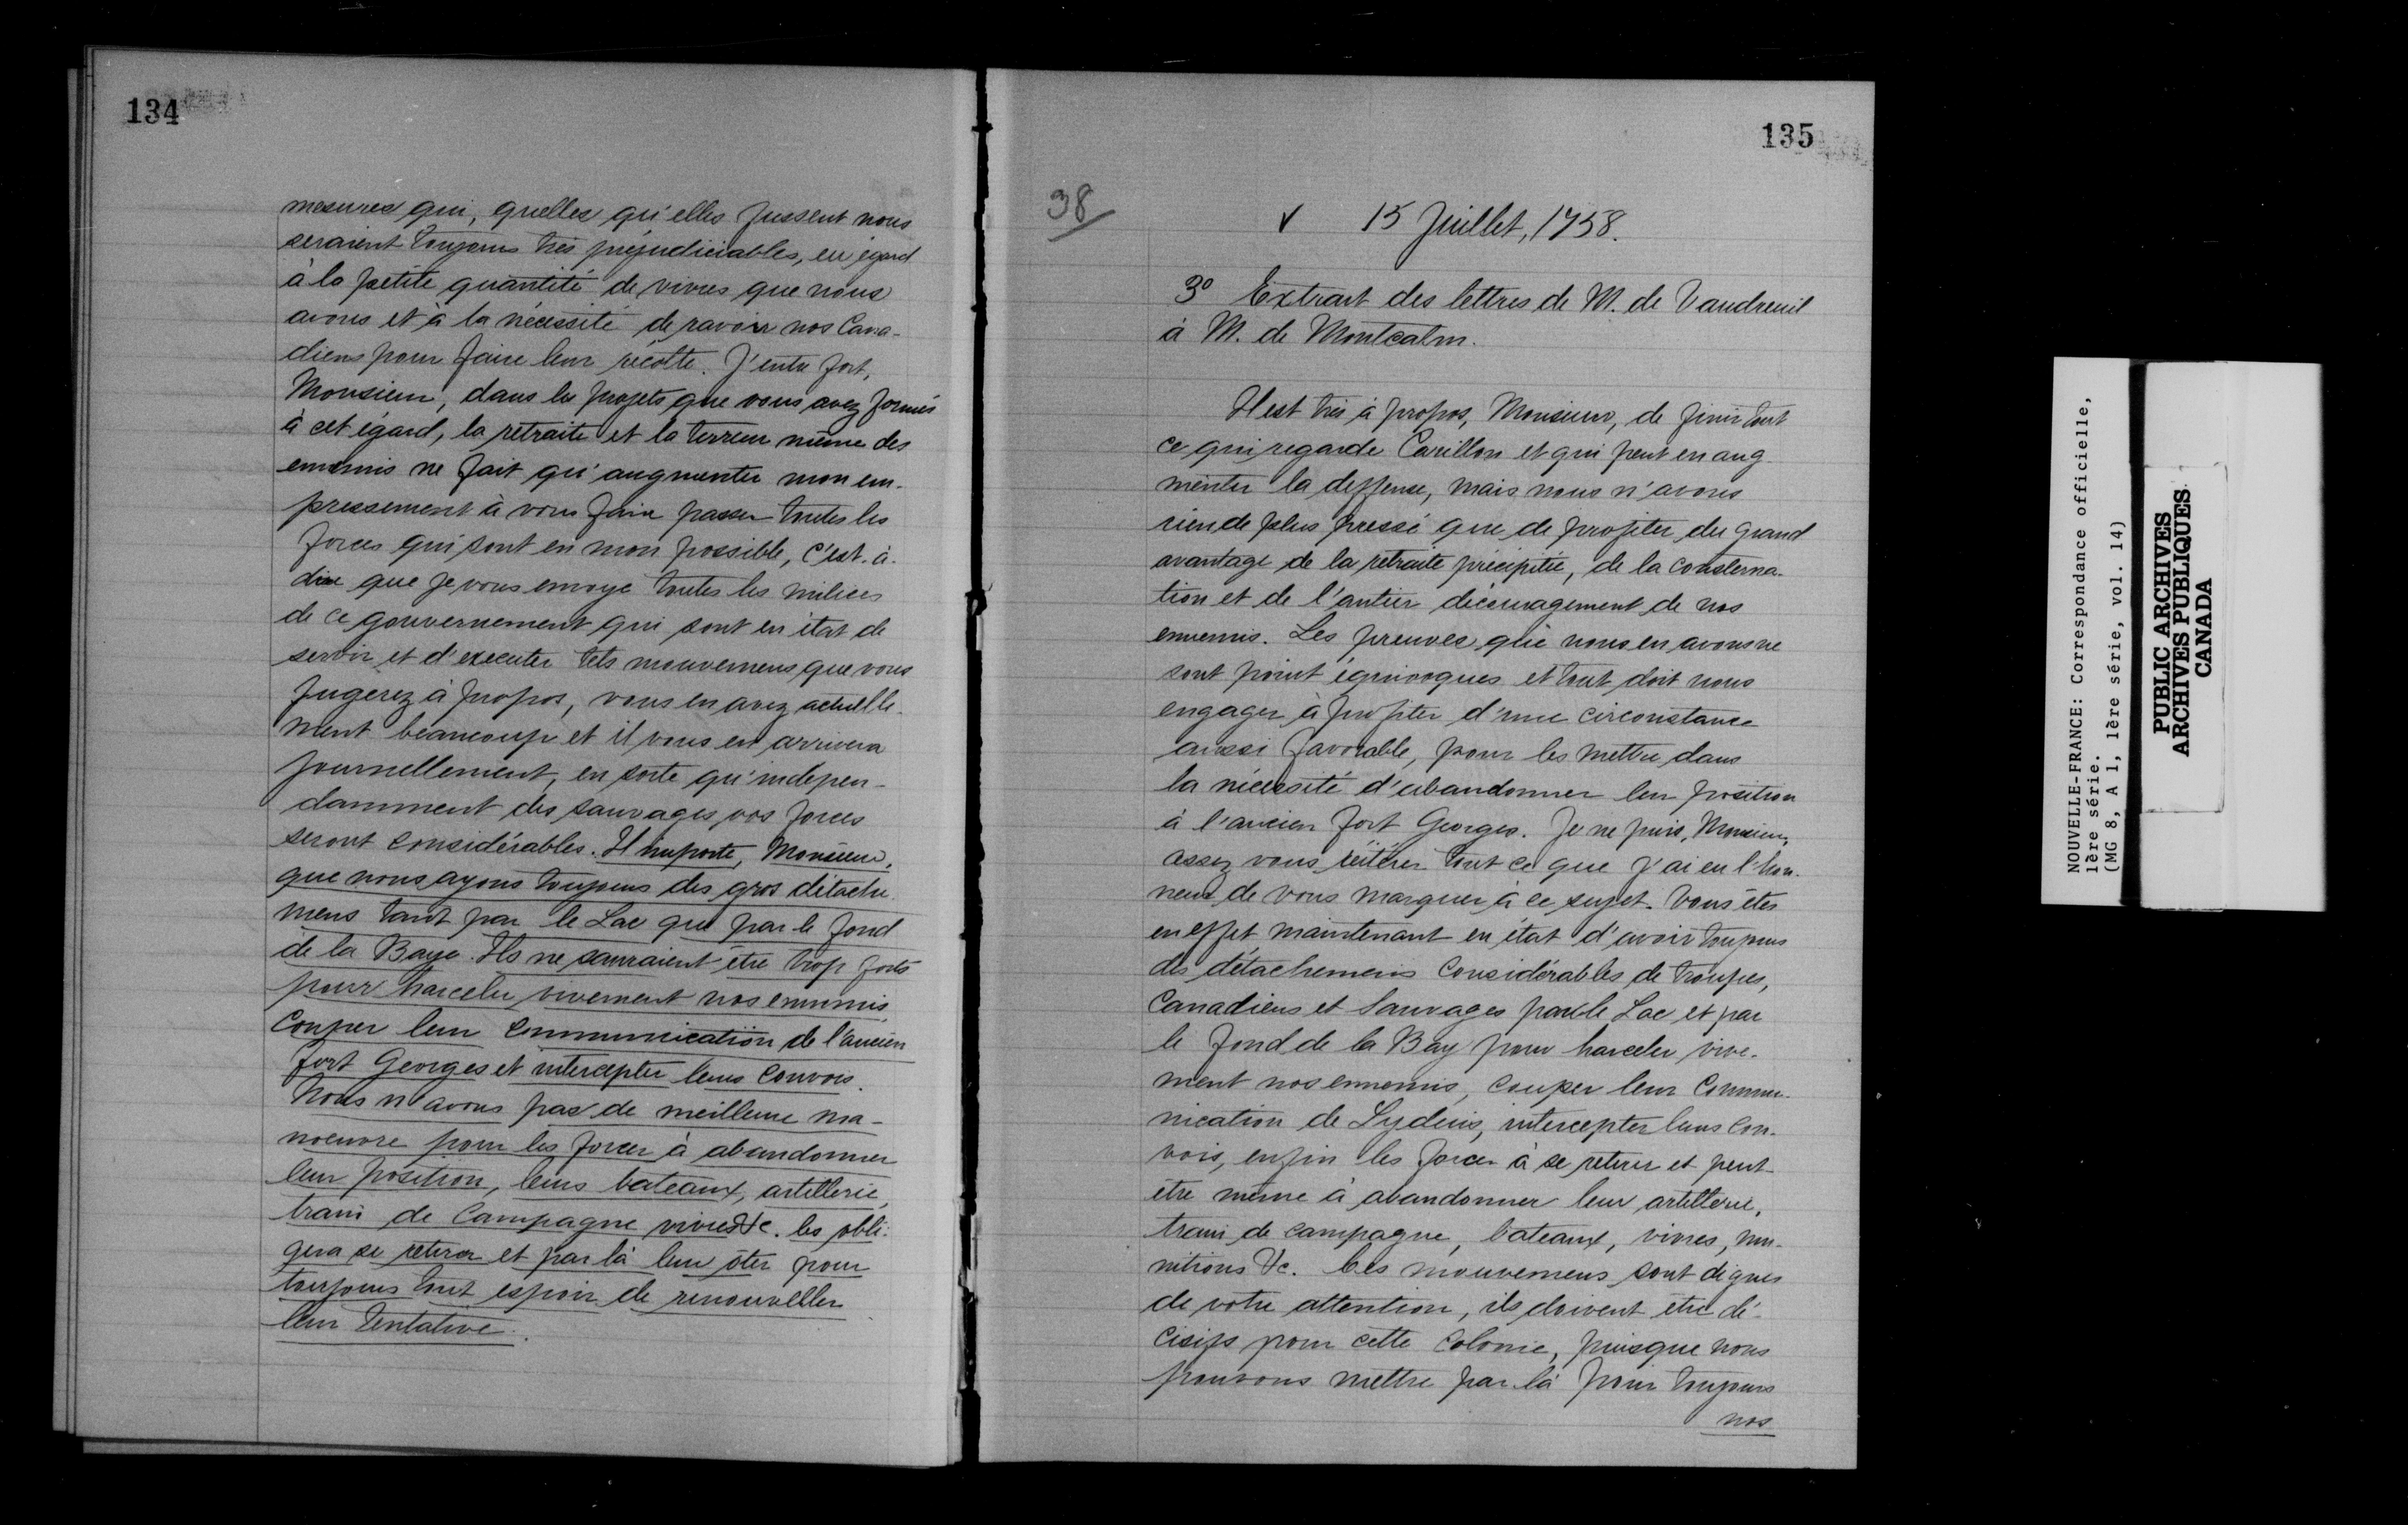 134
mesures qui, quelles qu'elles fussent nous
seraient toujours très préjudiciables, eu égard
à la petite quantité de vivres que nous
avons et à la nécessité de ravoir nos Cana-
diens pour faire leur récolte. J'entre fort,
Monsieur, dans les projets que vous avez formés
à cet égard, la retraite et la terreur même des
ennemis ne fait qu'augmenter mon em-
pressement à vous faire passer toutes les
forces qui sont en mon possible, c'est-à-
dire que je vous envoye toutes les milices
de ce gouvernement qui sont en état de
servir et d'executer tels mouvemens que vous
jugerez à propos, vous en avez actuelle-
ment beaucoup et il vous en arrivera
journellement, en sorte qu'indepen-
damment des sauvages, vos forces
seront considérables. Il importe, Monsieur,
que nous ayons toujours des gros détache
mens tant par le Lac que par le fond
de la Baye. Ils ne sauraient être trop forts
pour harceler vivement nos ennemis,
couper leur communication de l'ancien
fort Georges et intercepter leurs convois.
Nous n'avons pas de meilleure ma-
noeuvre pour les forcer à abandonner
leur position, leurs bateaux, artillerie,
train de campagne vivres &c. les obli-
gera se retirer et par là leur ôter pour
toujours tout espoir de renouveller
leur tentative.
135
38
v 15 Juillet, 1758.
3º Extrait des lettres de M. de Vaudreuil
à M. de Montcalm.
Il est très à propos, Monsieur, de finir tout
ce qui regarde Carillon et qui peut en aug
menter la deffense, mais nous n'avons
rien de plus pressé que de profiter du grand
avantage de la retraite précipitée, de la consterna-
tion et de l'antier découragement de nos
ennemis. Les preuves que nous en avons ne
sont point équivoques et tout doit nous
engager à profiter d'une circonstance
aussi favorable, pour les mettre dans
la nécessité d'abandonner leur position
à l'ancien fort Georges. Je ne puis, Monsieur,
assez vous réitérer tout ce que j'ai eu l'hon-
neur de vous marquer à ce sujet. Vous êtes
en effet maintenant en état d'avoir toujours
des détachemens considérables de troupes,
Canadiens et Sauvages par le Lac et par
le fond de la Bay pour harceler vive-
ment nos ennemis, couper leur commu-
nication de Lydius, intercepter leurs con-
vois, enfin les forcer à se retirer et peut-
être même à abandonner leur artillerie,
train de campagne, bateaux, vivres, mu-
nitions &c. Ces mouvemens sont dignes
de votre attention, ils doivent être dé-
cisifs pour cette colonie, puisque nous
pouvons mettre par là pour toujours
nos
NOUVELLE-FRANCE: Correspondance officielle,
1ère série.
(MG 8, A 1, 1ère série, vol. 14)
PUBLIC ARCHIVES
ARCHIVES PUBLIQUES
CANADA